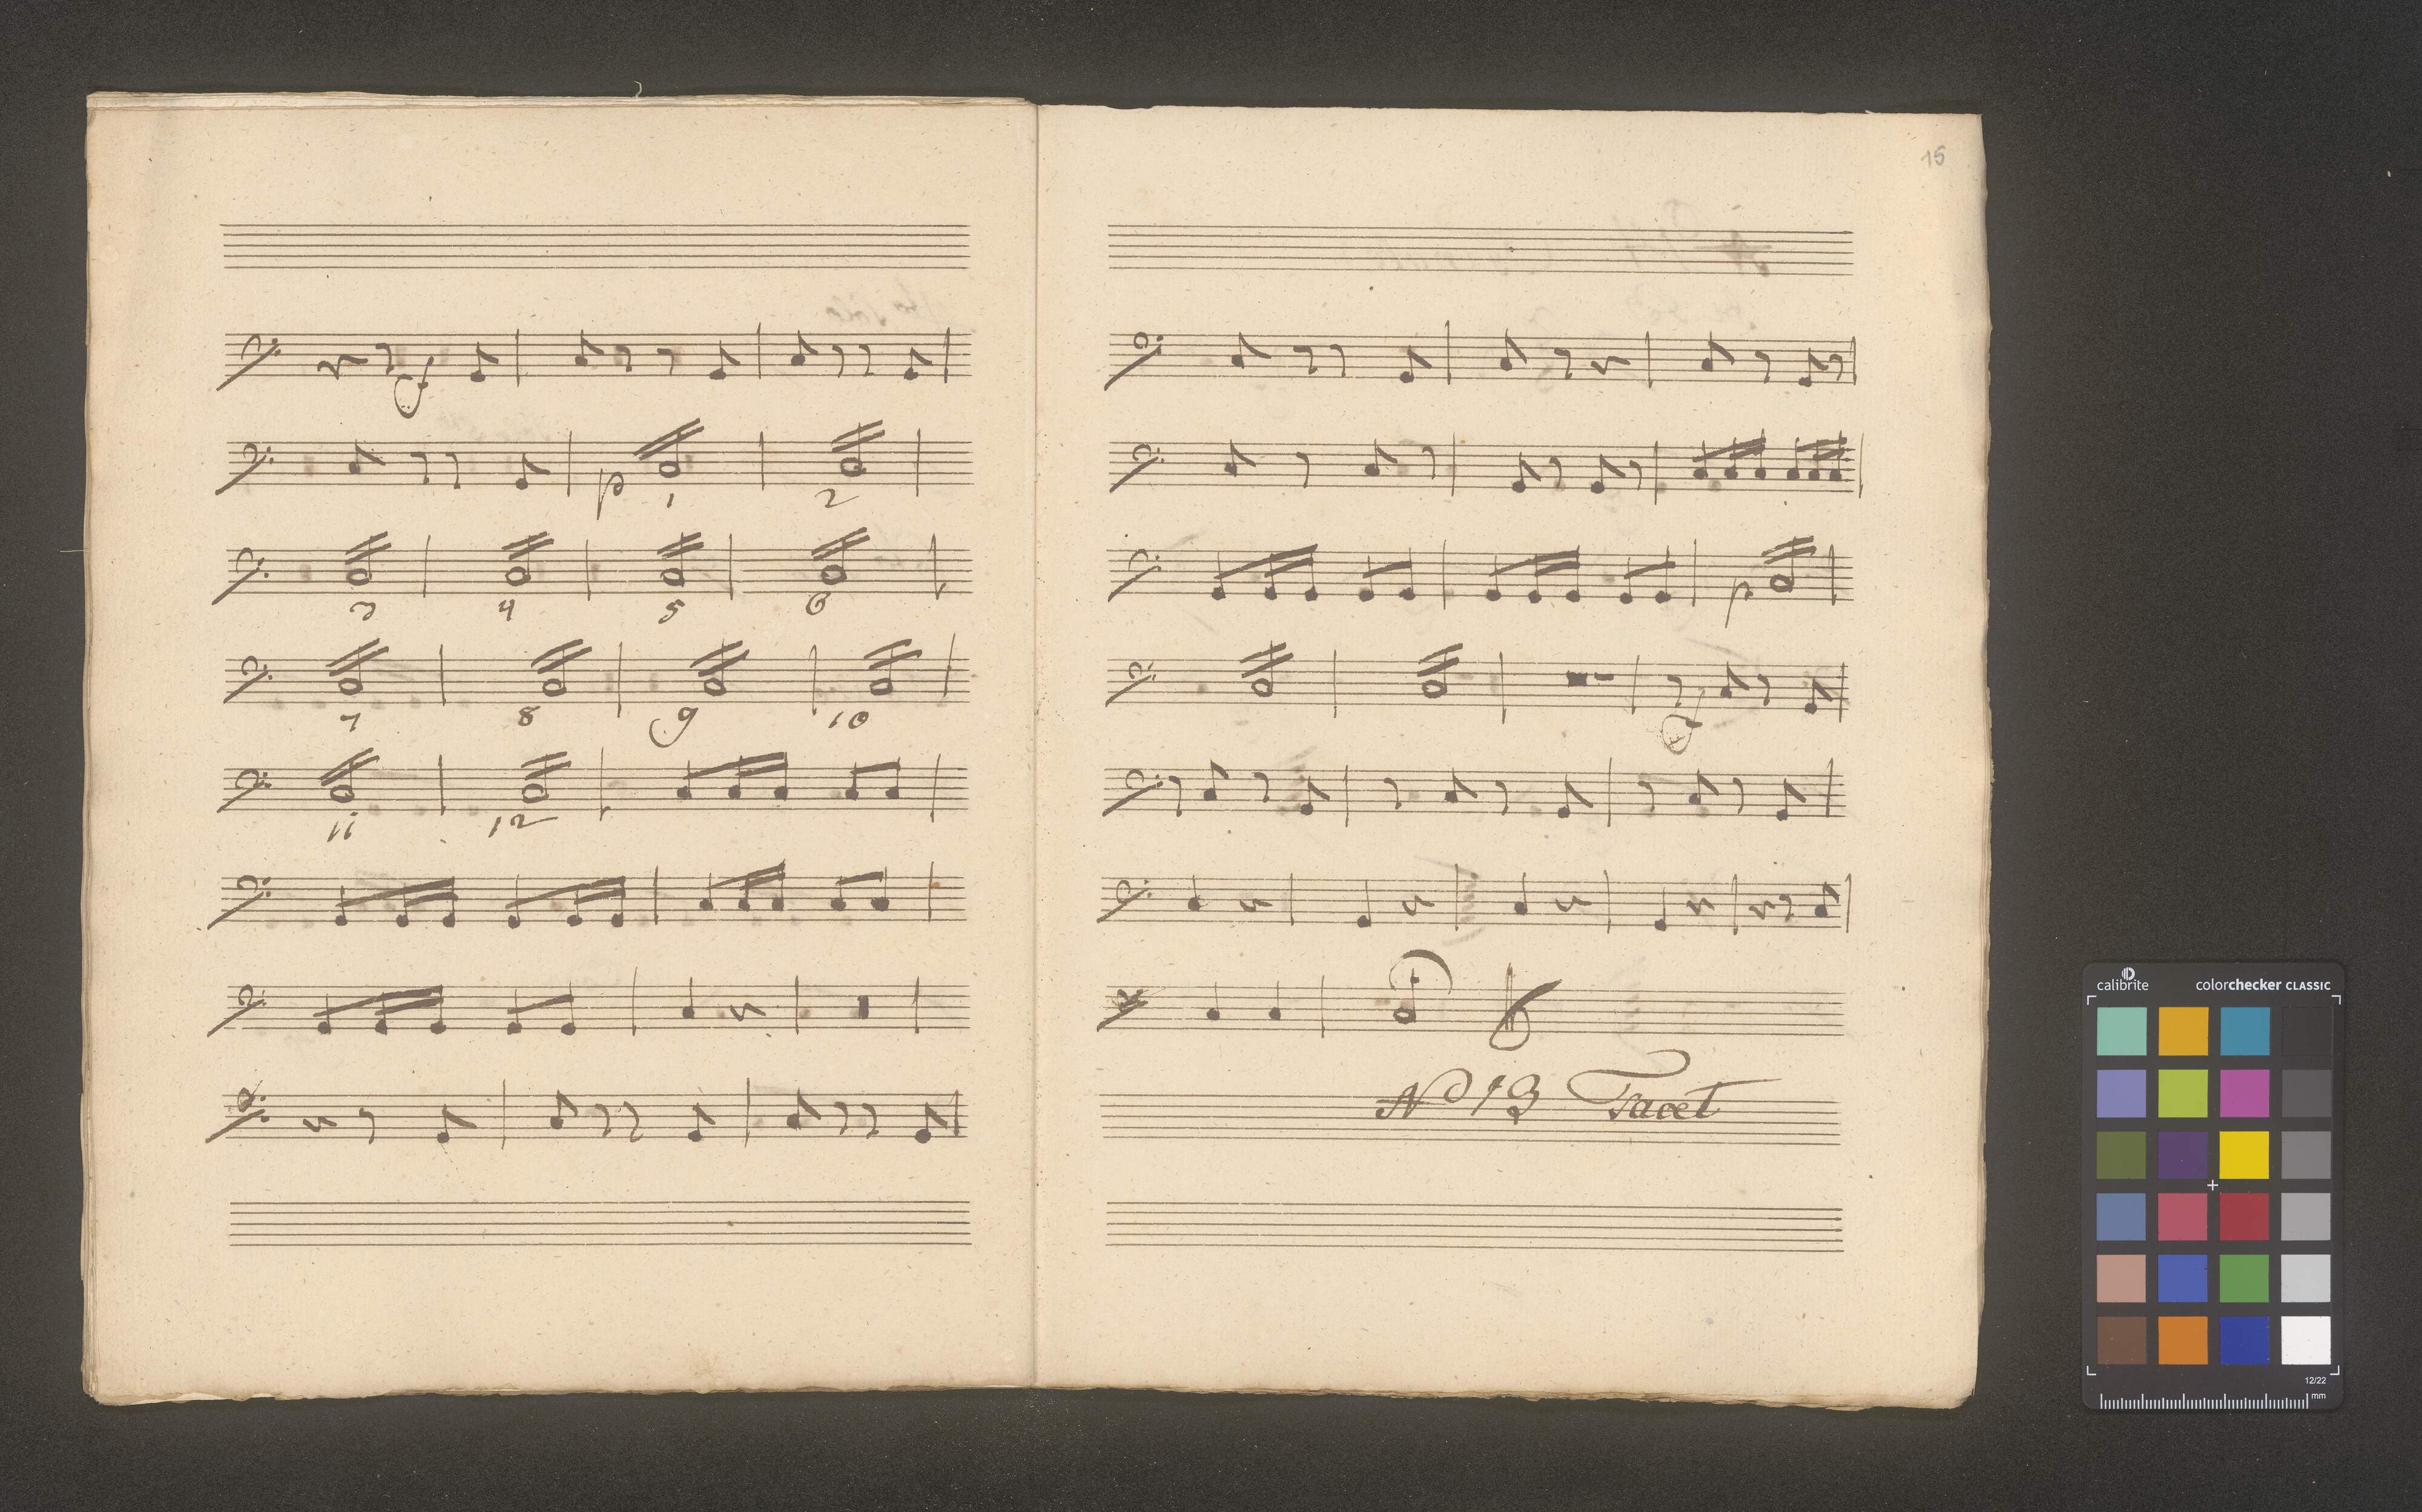 f
p 1 2
3 4 5 6
7 8 9 10
11 12
15
p
f
No 13 Tacet
calibrite colorchecker CLASSIC
12/22
mm